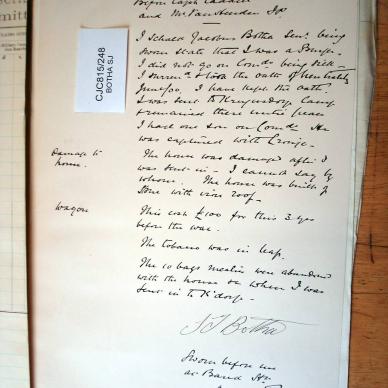 Before Capt
and Mr
I Schalk Jacobus Botha Senr. being
sworn state that I was a Burger.
I did not go on Comdo being sick —
I surrend & took the oath of neutrality
June/00. I have kept the oath.
I was sent to Krugersdorp Camp
& remained there until peace
I had one son on Comdo. He
was captured with Cronje.
Damage to
house.
The house was damaged after I
was sent in — I cannot say by
whom. The house was built of
stone with iron roof —
Wagon
This cost £100 for this 3 yrs
before the war.
The tobacco was in leaf.
The 10 bags mealies were abandoned
with the house &c when I was
sent in to K'dorp —
S J Botha
Sworn before me
CJC815/248
BOTHA SJ